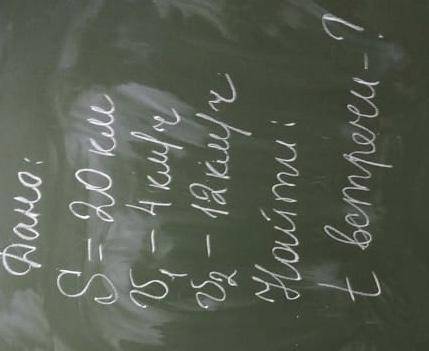 Дано:
S = 20 км
V₁ – 4 км/ч
V₂ – 12 км/ч
Найти:
t встречи – ?